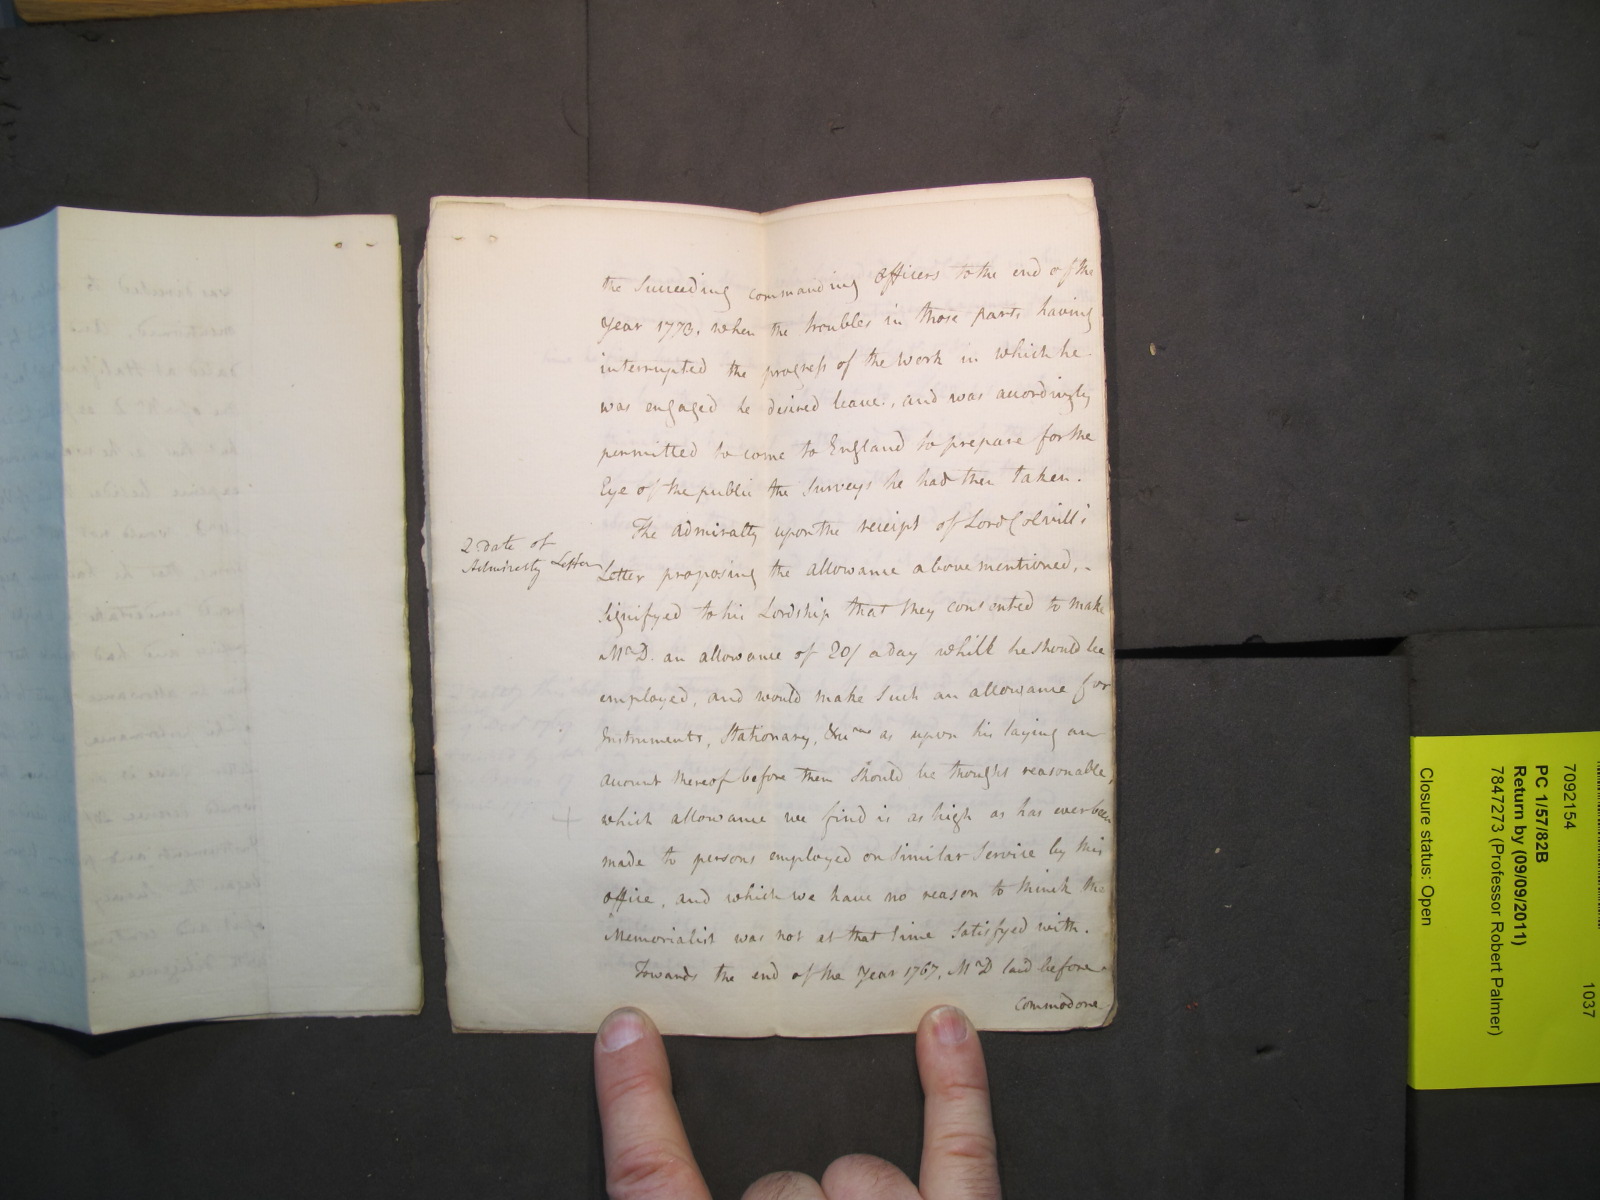 the Succeeding commanding Officers to the end of the
Year 1773, when the troubles in those parts having
interrupted the progress of the work in which he
was engaged he desired leave, and was accordingly
permitted to come to England to prepare for the
Eye of the public the Surveys he had then taken.
The Admiralty upon the receipt of Lord Colvill's
2 Date of
Admiralty Letter
Letter proposing the allowance above mentioned,
signifyed to his Lordship that they consented to make
Mr D. an allowance of 20/ a day whilst he should be
employed, and would make such an allowance for
Instruments, Stationary, as upon his laying an
account thereof before them should be thought reasonable,
which allowance we find is as high as has ever been
made to persons employed on similar Service by this
office, and which we have no reason to think the
Memorialist was not at that time Satisfyed with.
Towards the end of the Year 1767, Mr D laid before
Commodore
7092154
1037
PC 1/57/82B
Return by (09/09/2011)
7847273 (Professor Robert Palmer)
Closure status: Open